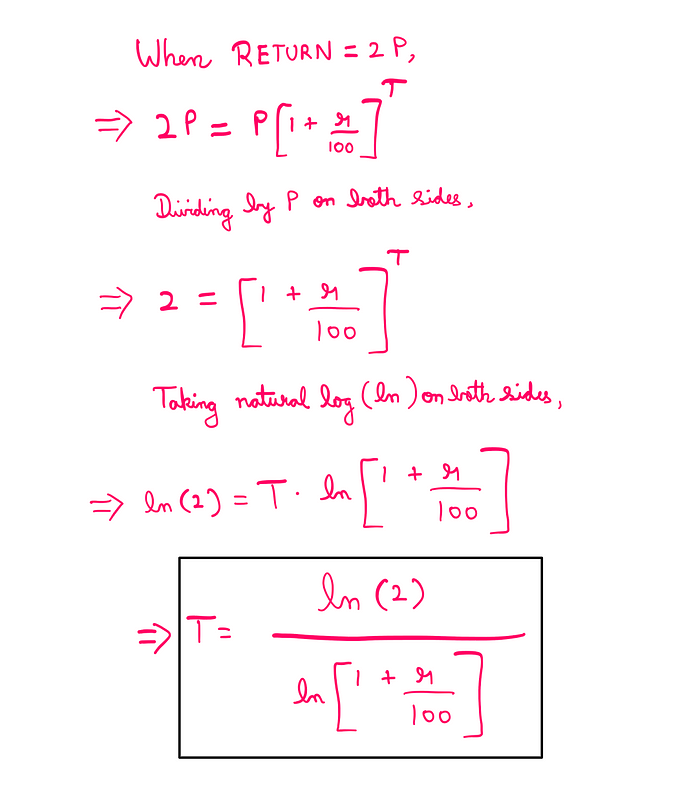 When RETURN = 2P,
⇒ 2P = P[1 + r/100]^T
Dividing by P on both sides,
⇒ 2 = [1 + r/100]^T
Taking natural log (ln) on both sides,
⇒ ln(2) = T · ln[1 + r/100]
⇒ T = ln(2) / ln[1 + r/100]